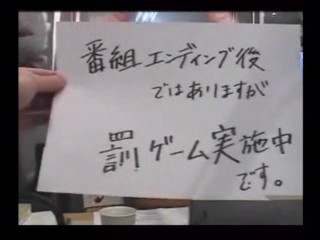 番組エンディング後
ではありますが
罰ゲーム実施中
です。